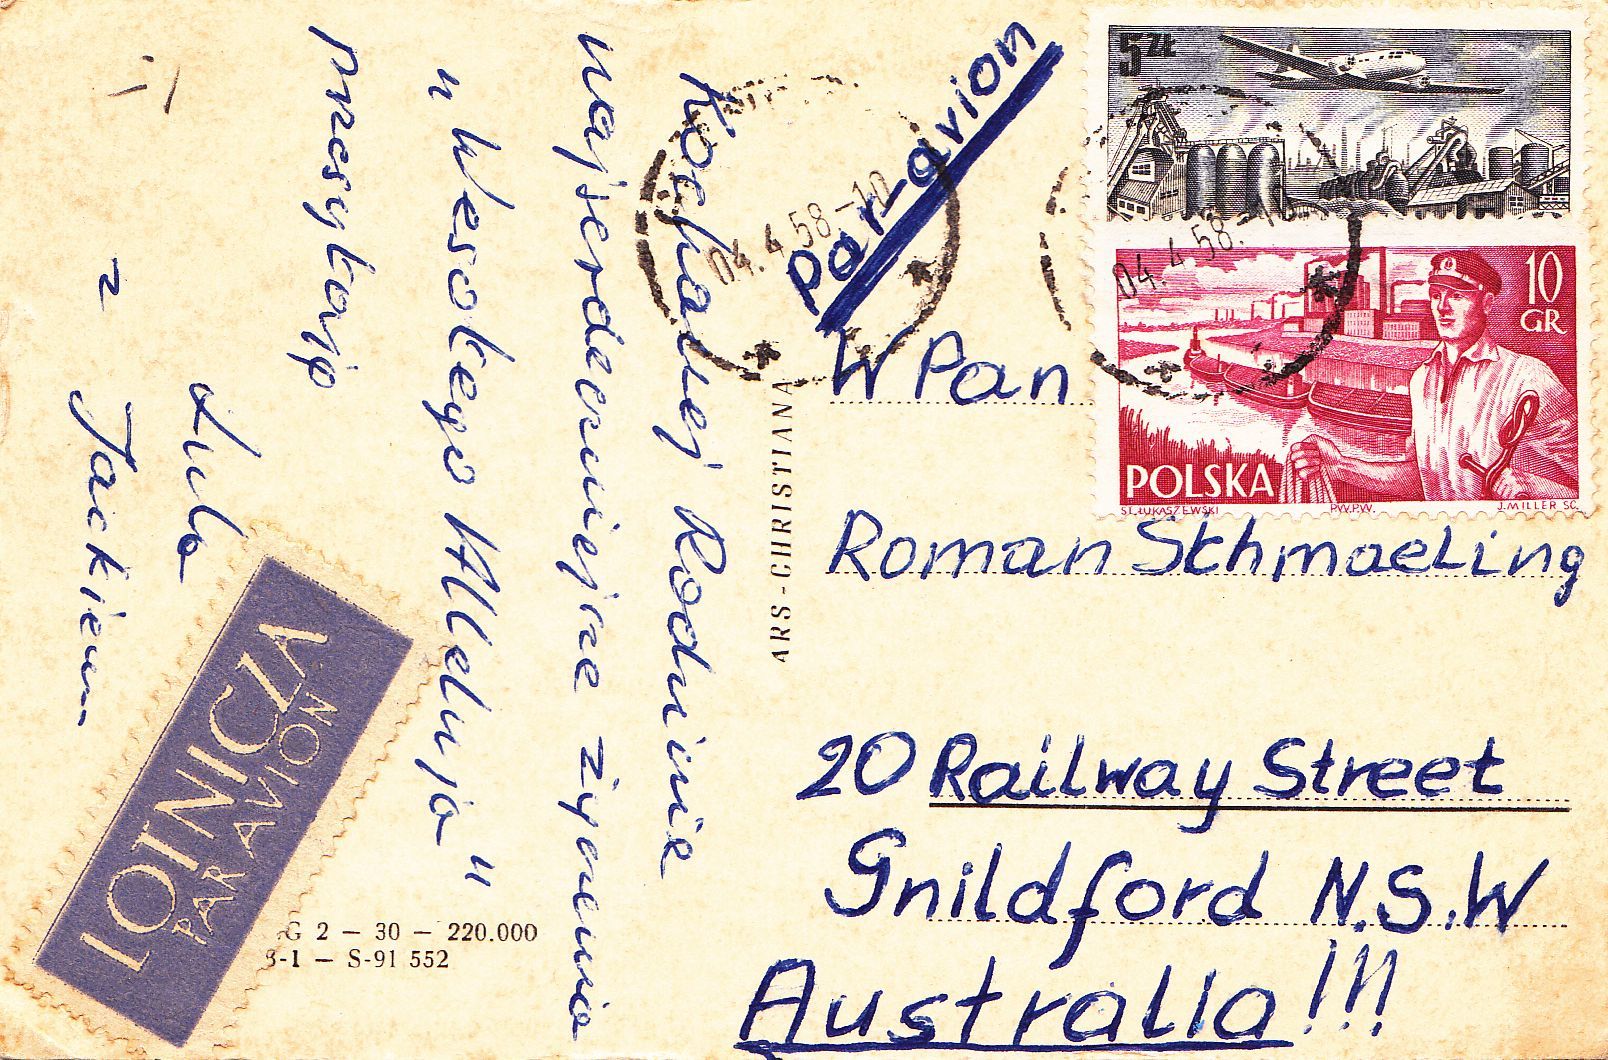 Kochanej Rodzinie
najserdeczniejsze życzenia
"Wesołego Alleluja"
przesyłają
Lula
z
Jackiem
LOTNICZA
PAR AVION
G 2 — 30 — 220.000
S-91 552
ARS-CHRISTIANA
Par-avion
04.4.58.-10
04.4.58.-10
5 ZŁ
10
GR
POLSKA
ST. ŁUKASZEWSKI P.W.P.W. J. MILLER SC.
W Pan
Roman Schmaeling
20 Railway Street
Guildford N.S.W
Australia!!!